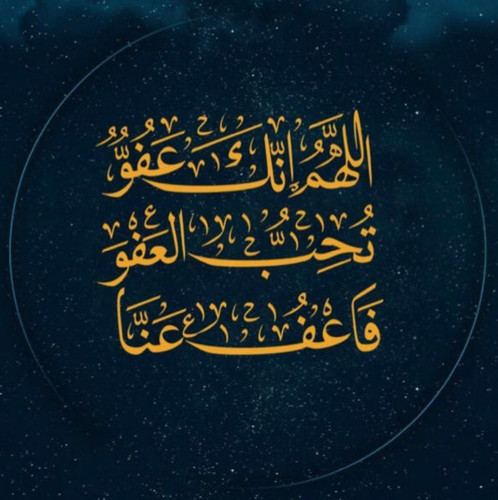 اللَّهُمَّ إِنَّكَ عَفُوٌّ
تُحِبُّ العَفْوَ
فَاعْفُ عَنَّا